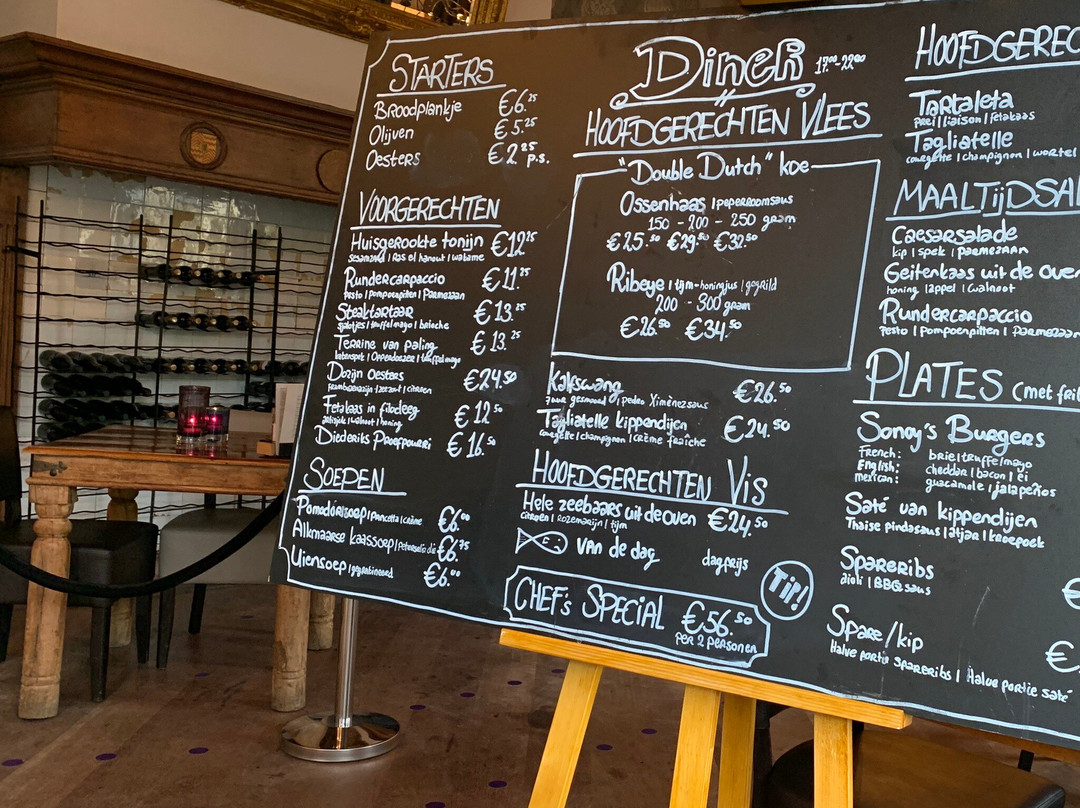 STARTERS
Broodplankje €6.25
Olijven €5.25
Oesters €2.25 p.s.
VOORGERECHTEN
Huisgerookte tonijn €12.25
sesamzaad | Ras el hanout | wakame
Rundercarpaccio €11.25
Pesto | pompoenpitten | Parmezaan
Steaktartaar €13.25
sjalotjes | truffelmayo | brioche
Terrine van paling €13.25
Dozijn Oesters €24.50
Frambozenazijn | citroen
Fetakaas in filodeeg €12.50
artisjok | walnoot | honing
Diederiks Proefpourri €16.50
SOEPEN
Pomodorisoep | Pancetta | crème €6.00
Alkmaarse kaassoep | Peterselie olie €6.75
Uiensoep | gegratineerd €6.00
DineR 17.00-22.00
HOOFDGERECHTEN VLEES
"Double Dutch" koe
Ossenhaas | peperroomsaus
150 - 200 - 250 gram
€25.50 €29.50 €32.50
Ribeye | tijm-honingjus | gegrild
200 - 300 gram
€26.50 €34.50
Kalfswang €26.50
7 uur gesmoord | Pedro Ximénez saus
Tagliatelle kippendijen €24.50
courgette | champignon | crème fraîche
HOOFDGERECHTEN VIS
Hele zeebaars uit de oven €24.50
citroen | Rozemarijn | tijm
van de dag dagprijs
CHEF's SPECIAL €56.50
per 2 personen
TiP!
HOOFDGEREC
Tartaleta
prei | liaison | fetakaas
Tagliatelle
courgette | champignon | wortel
MAALTijDSAL
Caesarsalade
kip | spek | parmezaan
Geitenkaas uit de oven
honing | appel | walnoot
Rundercarpaccio
Pesto | Pompoenpitten | Parmezaan
PLATES (met frit
Sonoy's Burgers
French: brie | truffelmayo
English: cheddar | bacon | ei
mexican: guacamole | jalapeños
Saté van kippendijen
Thaise pindasaus | atjar | kroepoek
Spareribs
aioli | BBQ saus
€
Spare/kip
€
Halve portie spareribs | Halve portie saté